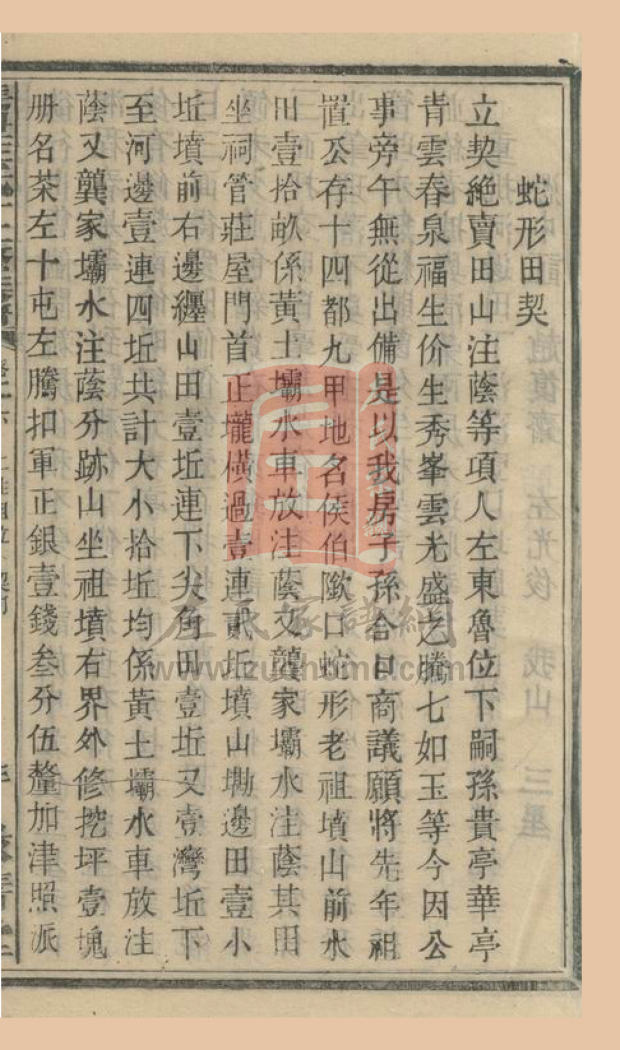 蛇形田契
立契絶賣田山注蔭等項人左東魯位下嗣孫貴亭華亭
青雲春泉福生价生秀峯雲尤盛之騰七如玉等今因公
事旁午無從出備是以我房子孫合口商議願將先年祖
置公存十四都九甲地名侯伯隞口蛇形老祖墳山前水
田壹拾畝係黃土壩水車放注蔭又龔家壩水注蔭其田
坐祠管莊屋門首正壠橫過壹連貳坵墳山墈邊田壹小
坵墳前右邊纏山田壹坵連下尖角田壹坵又壹灣坵下
至河邊壹連四坵共計大小拾坵均係黃土壩水車放注
蔭又龔家壩水注蔭分跡山坐祖墳右界外修挖坪壹塊
册名茶左十屯左騰扣軍正銀壹錢叁分伍釐加津照派
左氏家譜網
www.zuohome.com